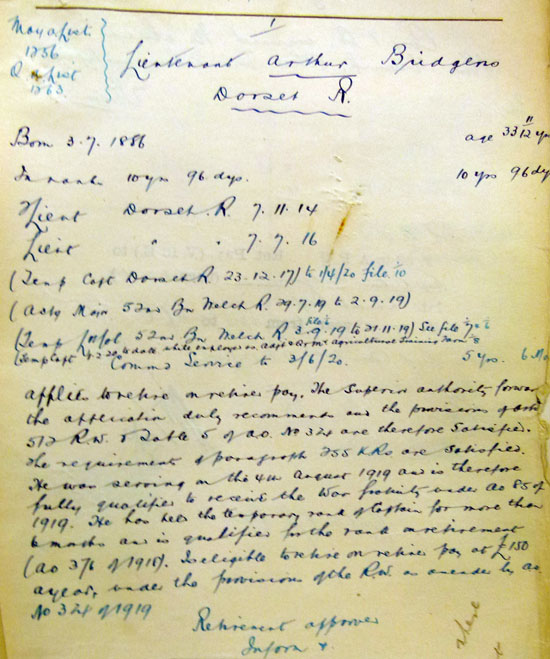 May a List
1256
Q a List
1263
Lieutenant Arthur Bridgens
Dorset R.
Born 3.7.1886 age 33 11/12 yrs
In ranks 10 yrs 96 dys. 10 yrs 96 dys
2/Lieut Dorset R. 7.11.14
Lieut " " 7.7.16
(Temp Capt Dorset R. 23.12.17) to 1/4/20 file
(Actg Major 52nd Bn Welch R. 29.7.19 to 2.9.19)
(Temp 52nd Bn Welch R. 3.9.19 to 21.11.19) See file
(Temp Capt to date while employed as Agricultural Training
Commd Service to 3/6/20. 5 yrs. 6
applies to retire on retired pay. The Superior authority forward
the application duly recommended and the provisions of
R.W. & Table 5 of a.o. No 324 are therefore Satisfied.
The requirements of paragraph 255 K.Rs are Satisfied.
He was serving on the 4th August 1919 and is therefore
fully qualified to receive the War Gratuity under ao 85 of
1919. He has held the temporary rank of Captain for more than
6 months and is qualified for the rank on retirement
(ao 376 of 1918). Is eligible to retire on retired pay at £150
a year, under the provisions of the R.W. as amended by ao.
No 324 of 1919
Retirement approved
Inform